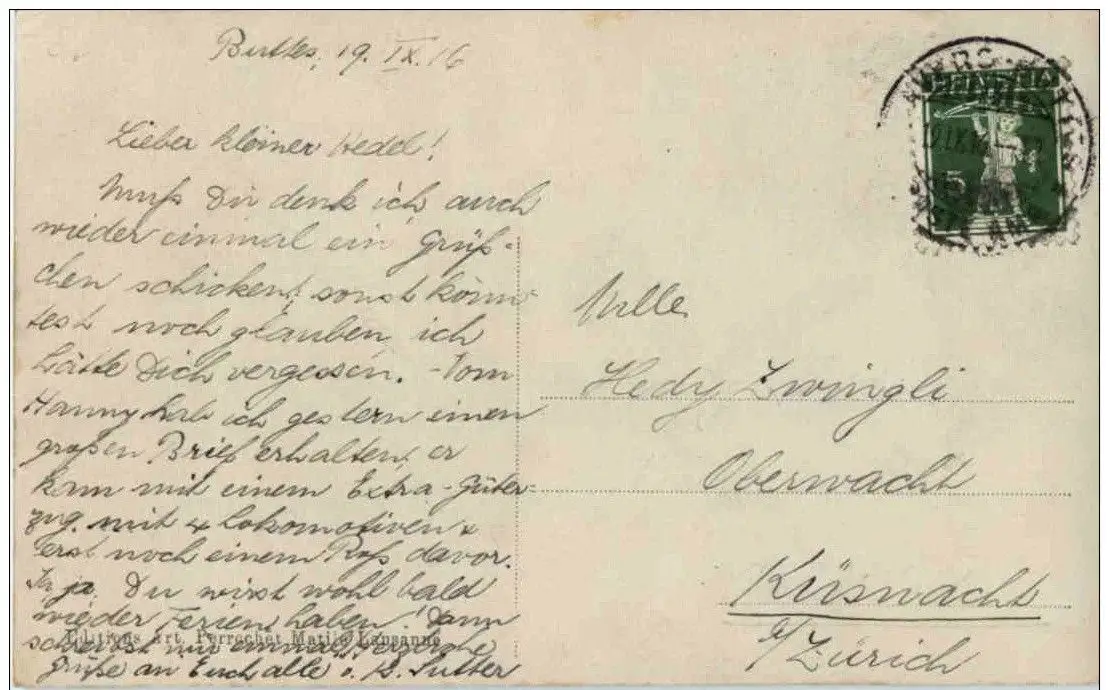 Buttes, 19. IX. 16
Lieber kleiner Hedel!
Muß Dir denk ich auch
wieder einmal ein Grüß-
chen schicken, sonst könn-
test noch glauben, ich
hätte Dich vergessen. - Vom
Hanny hab ich gestern einen
großen Brief erhalten, er
kam mit einem Extra-Güter-
zug. mit 4 Lokomotiven &
erst noch einem Roß davor.
Ja ja. Du wirst wohl bald
wieder Ferien haben! Dann
schreibst mir einmal,
grüße an Euch alle v. B. Sutter
Editions Art. Perrochet Matile Lausanne
5
Mlle
Hedy Zwingli
Oberwacht
Küsnacht
b/Zürich